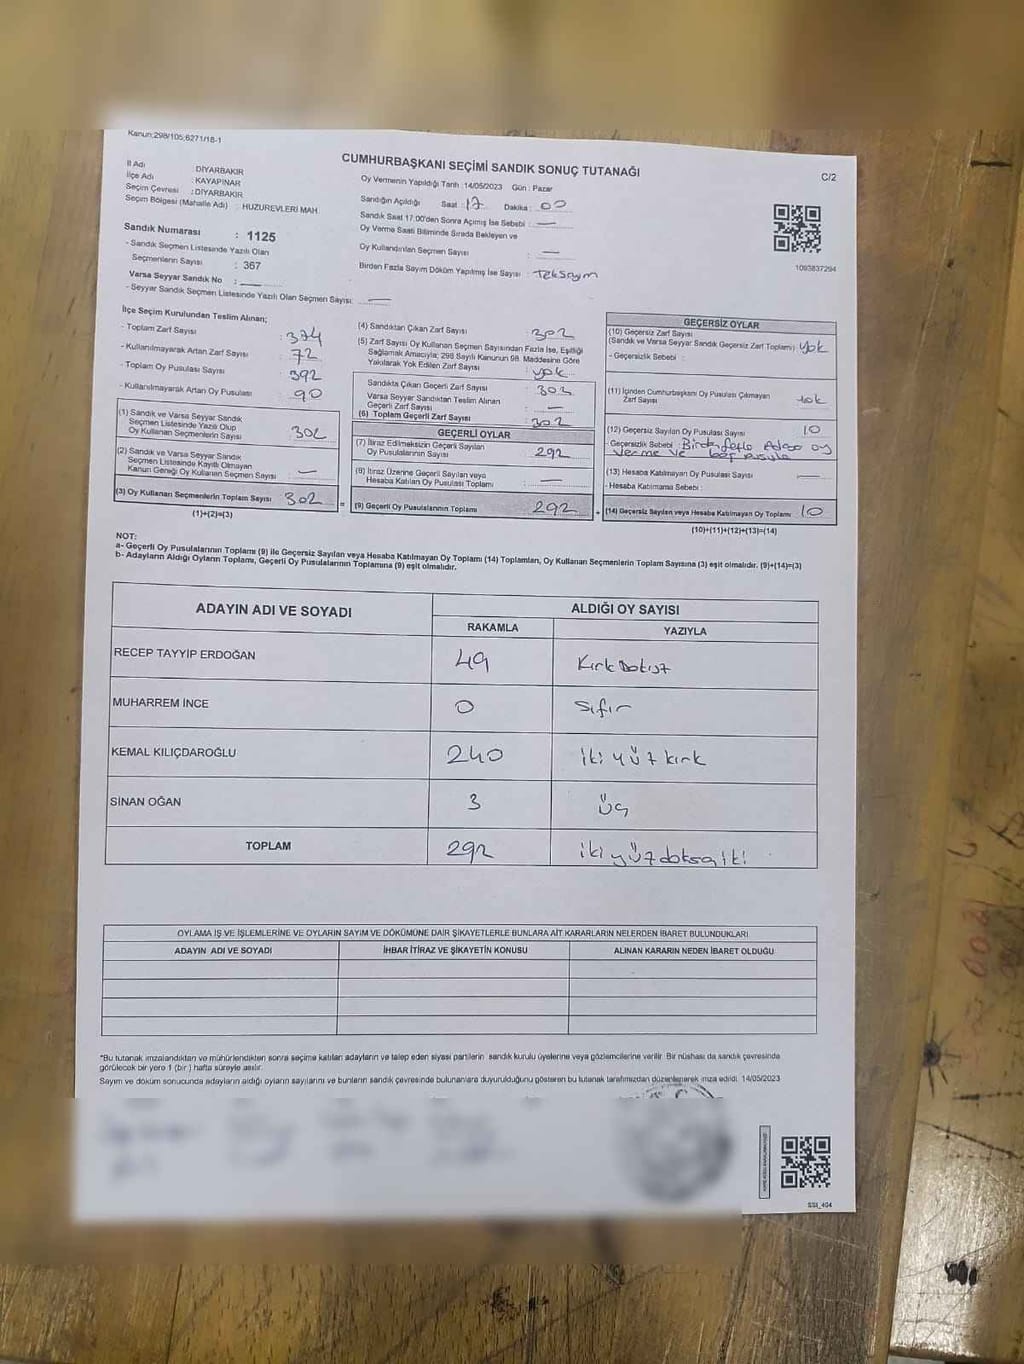 Kanun:298/105;6271/18-1
CUMHURBAŞKANI SEÇİMİ SANDIK SONUÇ TUTANAĞI
C/2
İl Adı : DİYARBAKIR
İlçe Adı : KAYAPINAR
Seçim Çevresi : DİYARBAKIR
Seçim Bölgesi (Mahalle Adı) : HUZUREVLERİ MAH.
Sandık Numarası : 1125
- Sandık Seçmen Listesinde Yazılı Olan
Seçmenlerin Sayısı : 367
Varsa Seyyar Sandık No : —
- Seyyar Sandık Seçmen Listesinde Yazılı Olan Seçmen Sayısı: —
Oy Vermenin Yapıldığı Tarih :14/05/2023 Gün : Pazar
Sandığın Açıldığı Saat : 17 Dakika : 00
Sandık Saat 17:00'den Sonra Açılmış İse Sebebi : —
Oy Verme Saati Bitiminde Sırada Bekleyen ve
Oy Kullandırılan Seçmen Sayısı : —
Birden Fazla Sayım Döküm Yapılmış İse Sayısı : Tek Sayım
1093837294
İlçe Seçim Kurulundan Teslim Alınan;
- Toplam Zarf Sayısı : 374
- Kullanılmayarak Artan Zarf Sayısı : 72
- Toplam Oy Pusulası Sayısı : 392
- Kullanılmayarak Artan Oy Pusulası : 90
(1) Sandık ve Varsa Seyyar Sandık
Seçmen Listesinde Yazılı Olup
Oy Kullanan Seçmenlerin Sayısı : 302
(2) Sandık ve Varsa Seyyar Sandık
Seçmen Listesinde Kayıtlı Olmayan
Kanun Gereği Oy Kullanan Seçmen Sayısı : —
(3) Oy Kullanan Seçmenlerin Toplam Sayısı : 302
(1)+(2)=(3)
(4) Sandıktan Çıkan Zarf Sayısı : 302
(5) Zarf Sayısı Oy Kullanan Seçmen Sayısından Fazla İse, Eşitliği
Sağlamak Amacıyla; 298 Sayılı Kanunun 98. Maddesine Göre
Yakılarak Yok Edilen Zarf Sayısı : yok
Sandıkta Çıkan Geçerli Zarf Sayısı : 302
Varsa Seyyar Sandıktan Teslim Alınan
Geçerli Zarf Sayısı : —
(6) Toplam Geçerli Zarf Sayısı : 302
GEÇERLİ OYLAR
(7) İtiraz Edilmeksizin Geçerli Sayılan
Oy Pusulalarının Sayısı : 292
(8) İtiraz Üzerine Geçerli Sayılan veya
Hesaba Katılan Oy Pusulası Toplamı : —
(9) Geçerli Oy Pusulalarının Toplamı : 292
GEÇERSİZ OYLAR
(10) Geçersiz Zarf Sayısı
(Sandık ve Varsa Seyyar Sandık Geçersiz Zarf Toplamı) : yok
- Geçersizlik Sebebi :
(11) İçinden Cumhurbaşkanı Oy Pusulası Çıkmayan
Zarf Sayısı : yok
(12) Geçersiz Sayılan Oy Pusulası Sayısı : 10
- Geçersizlik Sebebi : Birden fazla Adaya oy
verme ve boş pusula
(13) Hesaba Katılmayan Oy Pusulası Sayısı : —
- Hesaba Katılmama Sebebi :
(14) Geçersiz Sayılan veya Hesaba Katılmayan Oy Toplamı : 10
(10)+(11)+(12)+(13)=(14)
NOT:
a- Geçerli Oy Pusulalarının Toplamı (9) ile Geçersiz Sayılan veya Hesaba Katılmayan Oy Toplamı (14) Toplamları, Oy Kullanan Seçmenlerin Toplam Sayısına (3) eşit olmalıdır. (9)+(14)=(3)
b- Adayların Aldığı Oyların Toplamı, Geçerli Oy Pusulalarının Toplamına (9) eşit olmalıdır.
ADAYIN ADI VE SOYADI ALDIĞI OY SAYISI
RAKAMLA YAZIYLA
RECEP TAYYİP ERDOĞAN 49 Kırk Dokuz
MUHARREM İNCE 0 Sıfır
KEMAL KILIÇDAROĞLU 240 iki yüz kırk
SİNAN OĞAN 3 üç
TOPLAM 292 iki yüz doksan iki
OYLAMA İŞ VE İŞLEMLERİNE VE OYLARIN SAYIM VE DÖKÜMÜNE DAİR ŞİKAYETLERLE BUNLARA AİT KARARLARIN NELERDEN İBARET BULUNDUKLARI
ADAYIN ADI VE SOYADI İHBAR İTİRAZ VE ŞİKAYETİN KONUSU ALINAN KARARIN NEDEN İBARET OLDUĞU
*Bu tutanak imzalandıktan ve mühürlendikten sonra seçime katılan adayların ve talep eden siyasi partilerin sandık kurulu üyelerine veya gözlemcilerine verilir. Bir nüshası da sandık çevresinde
görülecek bir yere 1 (bir) hafta süreyle asılır.
Sayım ve döküm sonucunda adayların aldığı oyların sayılarını ve bunların sandık çevresinde bulunanlara duyurulduğunu gösteren bu tutanak tarafımızdan düzenlenerek imza edildi. 14/05/2023
SSI_404